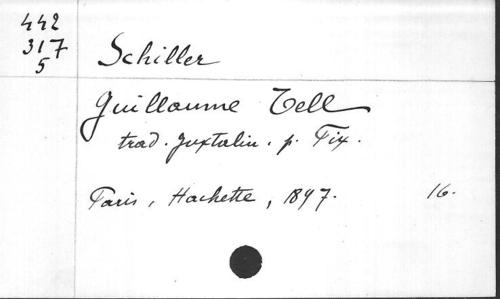 442
317
5
Schiller
Guillaume Tell
trad. juxtalin. p. Fix.
Paris, Hachette, 1897. 16.